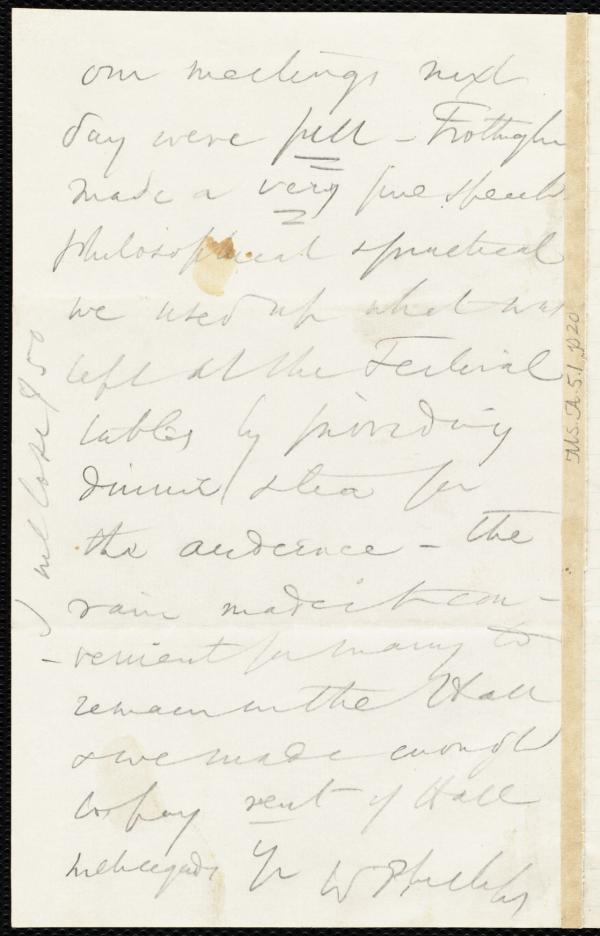 our meetings next
day were full - Frothingham
made a very fine speech
philosophical & practical
we used up what was
left at the Festival
tables by providing
dinner & tea for
the audience - the
rain made it con-
-venient for many to
remain in the Hall
& we made enough
to pay rent of Hall
Yr W Phillips
I enclose $50
MS. A. 5.1, p 20